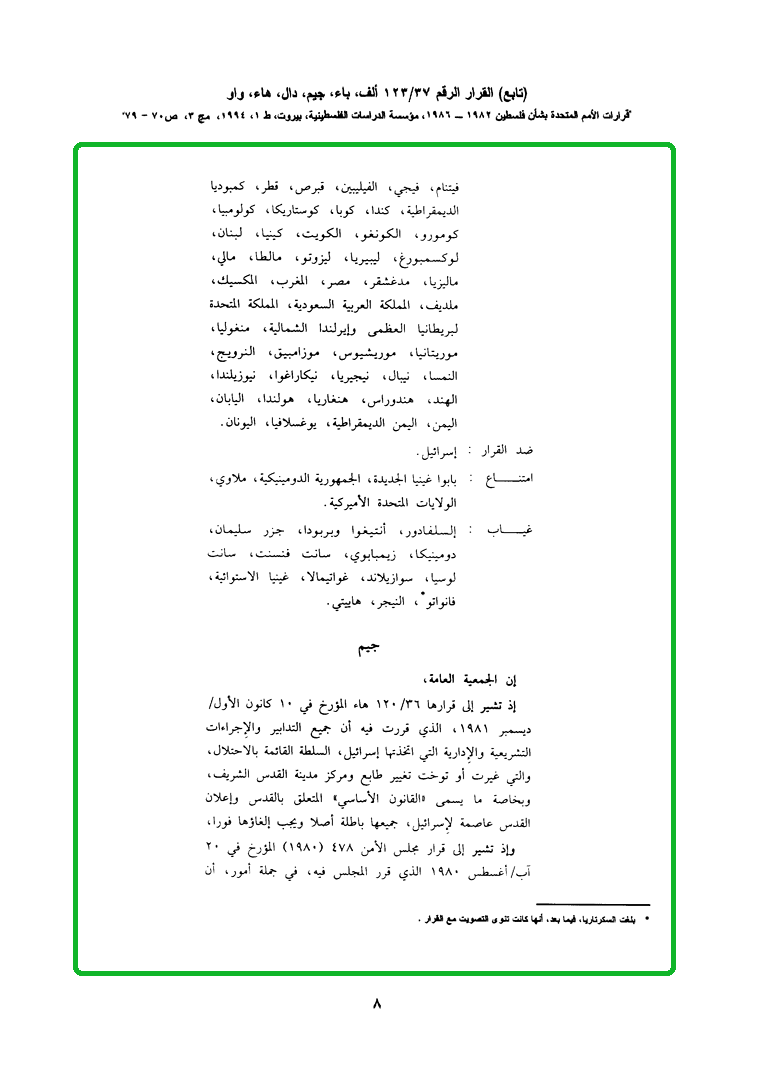 (تابع) القرار الرقم ١٢٣/٣٧ ألف، باء، جيم، دال، هاء، واو
"قرارات الأمم المتحدة بشأن فلسطين ١٩٨٢ ــ ١٩٨٦، مؤسسة الدراسات الفلسطينية، بيروت، ط ١، ١٩٩٤، مج ٣، ص٧٠ - ٧٩"
فيتنام، فيجي، الفيليبين، قبرص، قطر، كمبوديا
الديمقراطية، كندا، كوبا، كوستاريكا، كولومبيا،
كومورو، الكونغو، الكويت، كينيا، لبنان،
لوكسمبورغ، ليبيريا، ليزوتو، مالطا، مالي،
ماليزيا، مدغشقر، مصر، المغرب، المكسيك،
ملديف، المملكة العربية السعودية، المملكة المتحدة
لبريطانيا العظمى وإيرلندا الشمالية، منغوليا،
موريتانيا، موريشيوس، موزامبيق، النرويج،
النمسا، نيبال، نيجيريا، نيكاراغوا، نيوزيلندا،
الهند، هندوراس، هنغاريا، هولندا، اليابان،
اليمن، اليمن الديمقراطية، يوغسلافيا، اليونان.
ضد القرار : إسرائيل.
امتنـــــاع : بابوا غينيا الجديدة، الجمهورية الدومينيكية، ملاوي،
الولايات المتحدة الأميركية.
غيـــــاب : إلسلفادور، أنتيغوا وبربودا، جزر سليمان،
دومينيكا، زيمبابوي، سانت فنسنت، سانت
لوسيا، سوازيلاند، غواتيمالا، غينيا الاستوائية،
فانواتو*، النيجر، هاييتي.
جيم
إن الجمعية العامة،
إذ تشير إلى قرارها ١٢٠/٣٦ هاء المؤرخ في ١٠ كانون الأول/
ديسمبر ١٩٨١، الذي قررت فيه أن جميع التدابير والإجراءات
التشريعية والإدارية التي اتخذتها إسرائيل، السلطة القائمة بالاحتلال،
والتي غيرت أو توخت تغيير طابع ومركز مدينة القدس الشريف،
وبخاصة ما يسمى «القانون الأساسي» المتعلق بالقدس وإعلان
القدس عاصمة لإسرائيل، جميعها باطلة أصلا ويجب إلغاؤها فورا،
وإذ تشير إلى قرار مجلس الأمن ٤٧٨ (١٩٨٠) المؤرخ في ٢٠
آب/أغسطس ١٩٨٠ الذي قرر المجلس فيه، في جملة أمور، أن
* بلغت السكرتاريا، فيما بعد، أنها كانت تنوي التصويت مع القرار .
٨